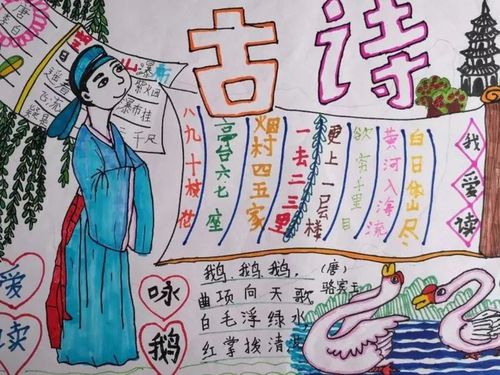 古诗
唐
李白
望
山瀑布
瀑布挂
三千尺
遥看
飞流
疑是
我爱读
白日依山尽
黄河入海流
欲穷千里目
更上一层楼
一去二三里
烟村四五家
亭台六七座
八九十枝花
爱
读
咏
鹅
鹅,鹅,鹅,
(唐)
骆宾王
曲项向天歌
白毛浮绿水
红掌拨清